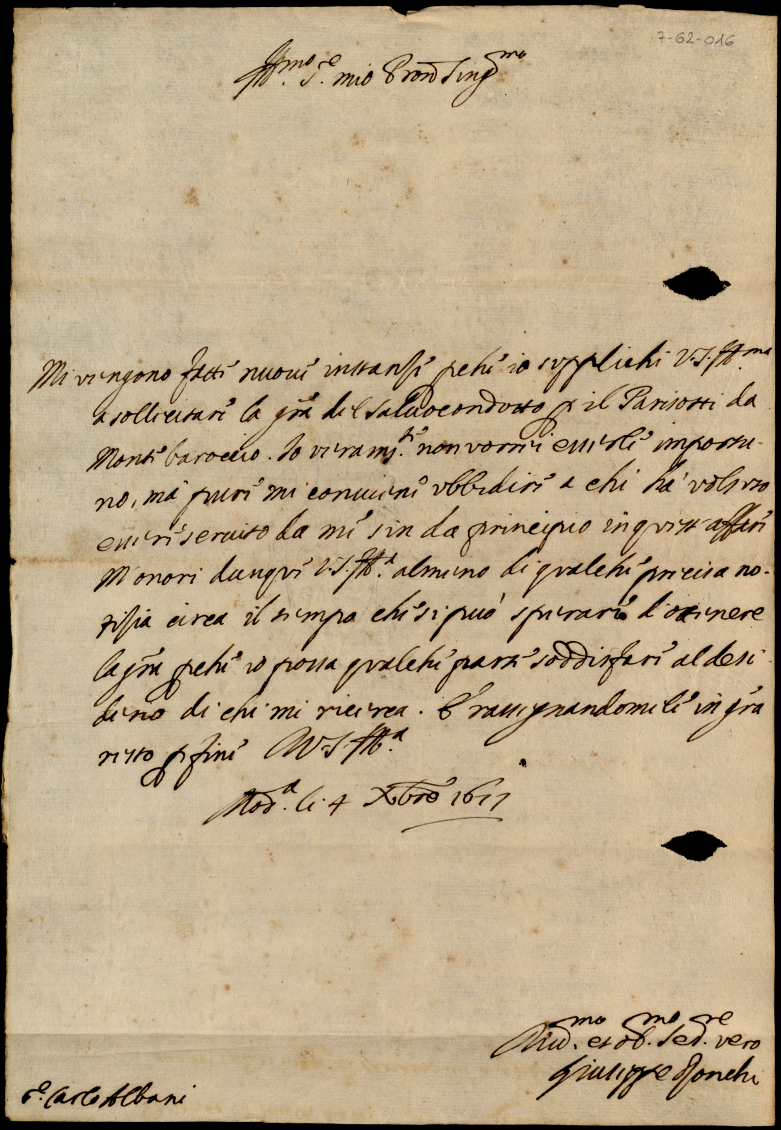 7-62-016
Ill.mo S.re mio Pron Sing.mo
Mi vengono fatte nuove instanze pche io supplichi V.S. Ill.ma
a sollecitare la gra del salvocondotto p il Parisotti da
Monte baroccio. Io veram.te non vorrei esserle importu-
no, mà pure mi conviene ubbedire a chi hà voluto
essere servito da me sin da principio in questo affare
M'onori dunque V.S. Ill.a almeno di qualche precisa no-
tizia circa il tempo che si può sperare d'ottenere
la gra pche io possa qualche parte soddisfare al desi
derio di chi mi ricerca. E rassegnandomele in gra
resto p fine Di V.S. Ill.a
Mod.a li 4 Xbre 1677
Div.mo et ob. Sed.re vero
Giuseppe Ronchi
S.r Carlo Albani